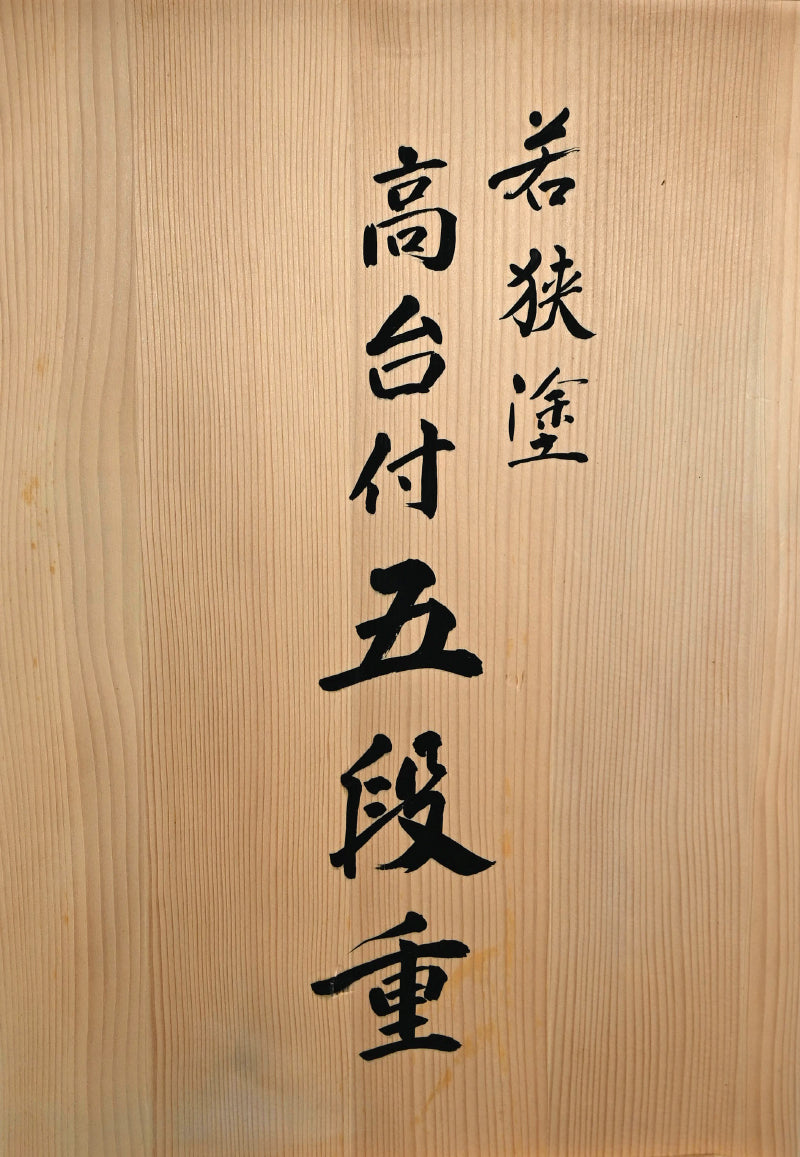 若狭塗
高台付五段重